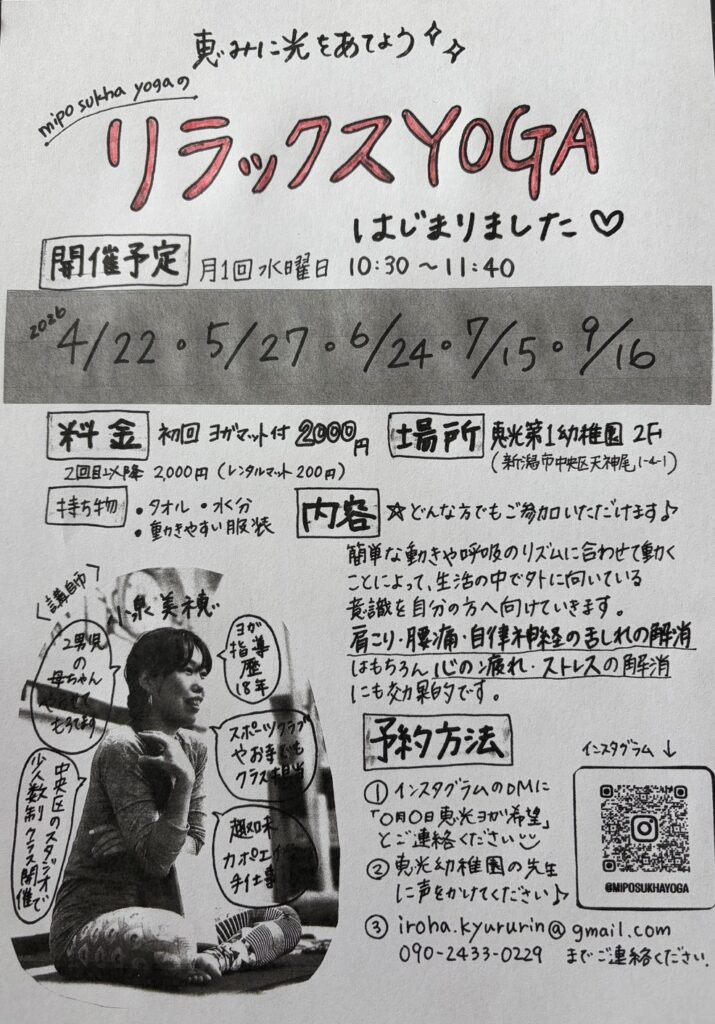 恵みに光をあてよう
mipo sukha yogaの
リラックスYOGA
はじまりました♡
開催予定 月1回水曜日 10:30〜11:40
2026
4/22・5/27・6/24・7/15・9/16
料金 初回 ヨガマット付 2000円
2回目以降 2,000円 (レンタルマット200円)
場所 恵光第1幼稚園 2F
(新潟市中央区天神尾1-4-1)
持ち物 ・タオル ・水分
・動きやすい服装
内容 ☆どんな方でもご参加いただけます♪
簡単な動きや呼吸のリズムに合わせて動く
ことによって、生活の中で外に向いている
意識を自分の方へ向けていきます。
肩こり・腰痛・自律神経の乱れの解消
はもちろん心の疲れ・ストレスの解消
にも効果的です。
〈講師〉
小泉美穂
2男児
の
母ちゃん
やらせて
もろてます
ヨガ
指導
歴
18年
スポーツクラブ
やお寺でも
クラス担当
中央区のスタジオで
少人数制クラス開催
趣味
カポエイラ
手仕事
予約方法
① インスタグラムのDMに
「0月0日恵光ヨガ希望」
とご連絡ください
② 恵光幼稚園の先生
に声をかけてください♪
③ iroha.kyururin@gmail.com
090-2433-0229 までご連絡ください.
インスタグラム ↓
@MIPOSUKHAYOGA